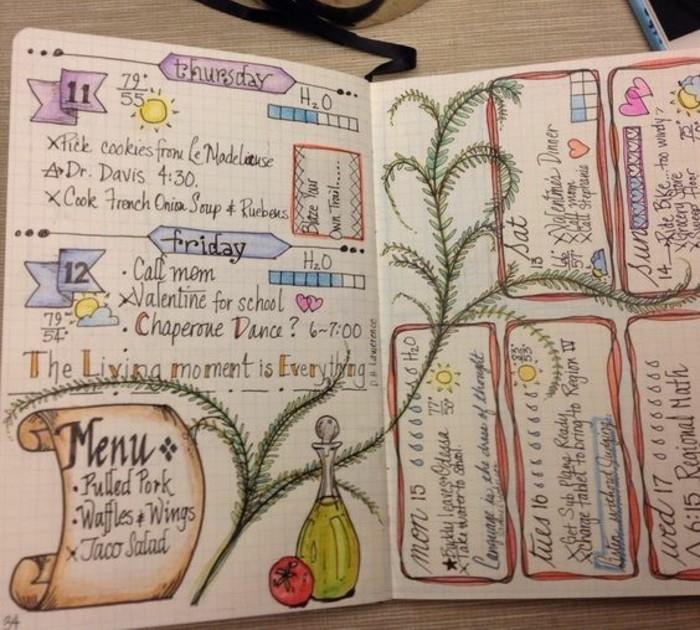 thursday
11
79°
55
H2O
XPick cookies from Le Madeliease
A>Dr. Davis 4:30.
X Cook French Onion Soup & Ruebens
Blaze Your
Own Trail.....
friday
12
H2O
79°
54°
· Call mom
XValentine for school
· Chaperone Dance? 6-7:00
The Living moment is Everything
D.H. Lawerence
Menu
· Pulled Pork
· Waffles & Wings
X Taco Salad
34
Sat
13
Valentine's Dinner
Call mom
Call Stephanie
Sun
14
Ride Bike...too windy?
Grocery Store
75°
mon 15
H2O
77°
50°
Buddy leaves @
Take water to school.
Language is the dress of thought
tues 16
83°
53
Get Sub Plans Ready
Charge tablet to bring to Region IV
wed 17
6:15 Regional Math